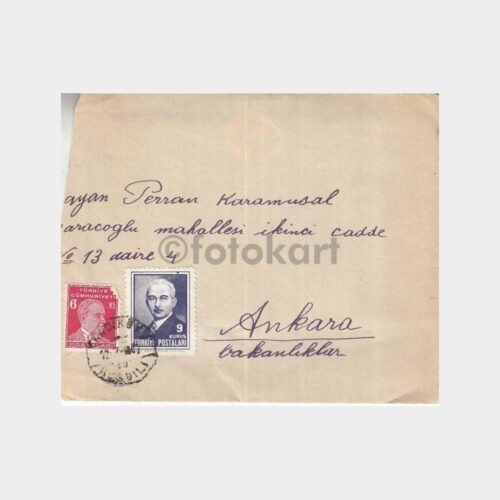 ayan Perran Karamusal
aracoglu mahallesi ikinci cadde
No 13 daire 4
©fotokart
Ankara
bakanlıklar
TÜRKİYE
CÜMHURİYETİ
6 KS
POSTA
9
KURUŞ
TÜRKİYE POSTALARI